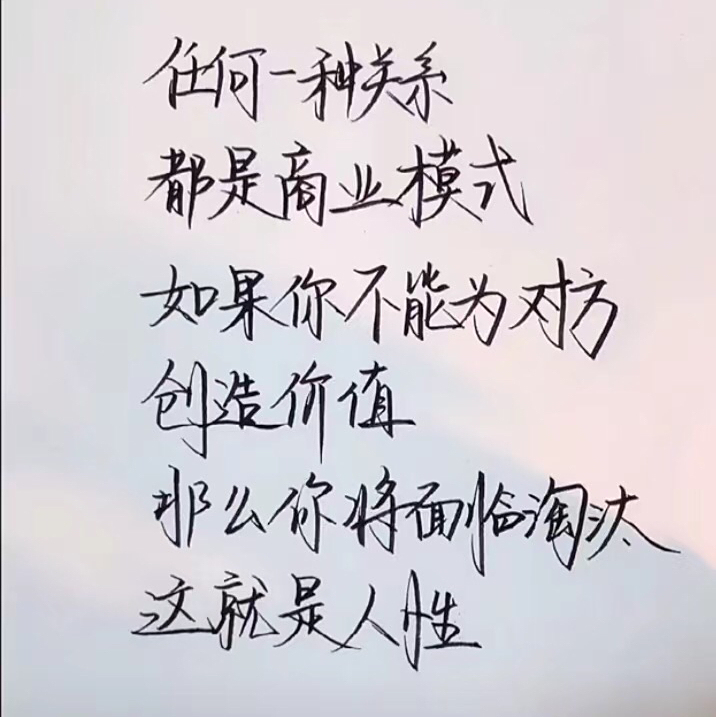 任何一种关系
都是商业模式
如果你不能为对方
创造价值
那么你将面临淘汰
这就是人性